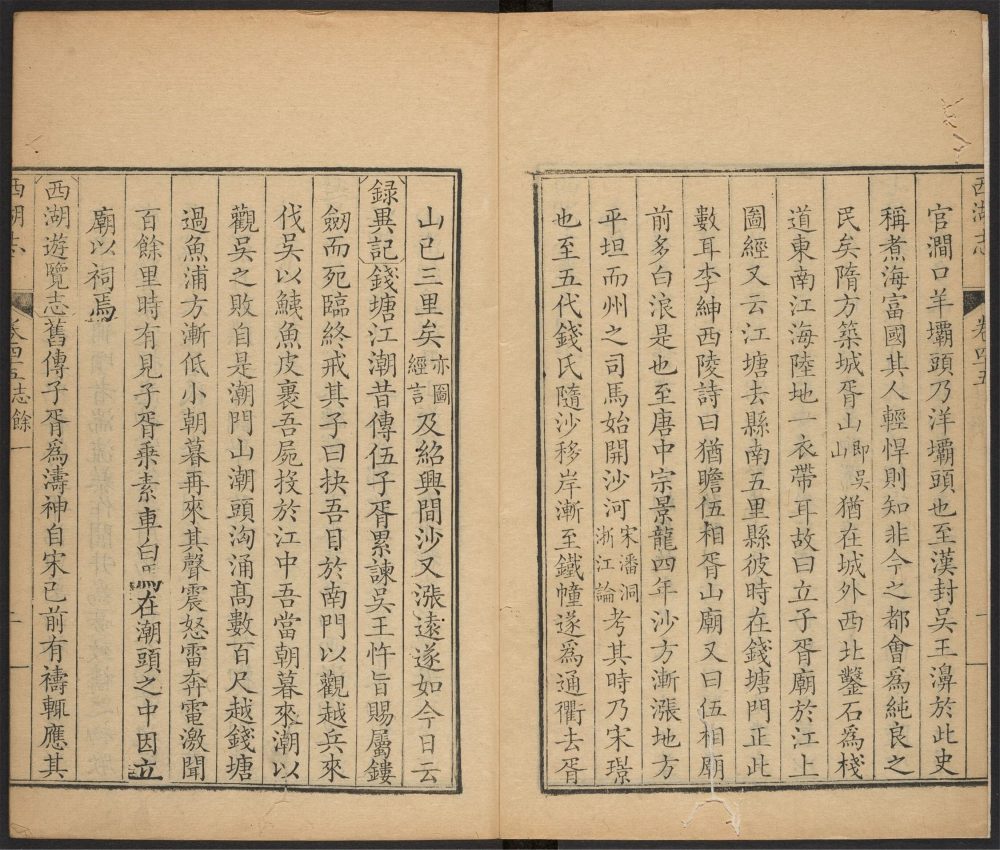 西湖志
卷四五
官澗口羊壩頭乃洋壩頭也至漢封吳王濞於此史
稱煮海富國其人輕悍則知非今之都會爲純良之
民矣隋方築城胥山即吳山猶在城外西北鑿石爲棧
道東南江海陸地一衣帶耳故曰立子胥廟於江上
圖經又云江塘去縣南五里縣彼時在錢塘門正此
數耳李紳西陵詩曰猶瞻伍相胥山廟又曰伍相廟
前多白浪是也至唐中宗景龍四年沙方漸漲地方
平坦而州之司馬始開沙河宋潘洞浙江論考其時乃宋璟
也至五代錢氏隨沙移岸漸至鐵幢遂爲通衢去胥
山已三里矣亦圖經言及紹興間沙又漲遠遂如今日云
録異記錢塘江潮昔傳伍子胥累諫吳王忤旨賜屬鏤
劒而死臨終戒其子曰抉吾目於南門以觀越兵來
伐吳以鮧魚皮裹吾屍投於江中吾當朝暮來潮以
觀吳之敗自是潮門山潮頭洶涌高數百尺越錢塘
過魚浦方漸低小朝暮再來其聲震怒雷奔電激聞
百餘里時有見子胥乗素車白馬在潮頭之中因立
廟以祠焉
西湖遊覽志舊傳子胥爲濤神自宋已前有禱輒應其
西湖志
卷四五志餘
一